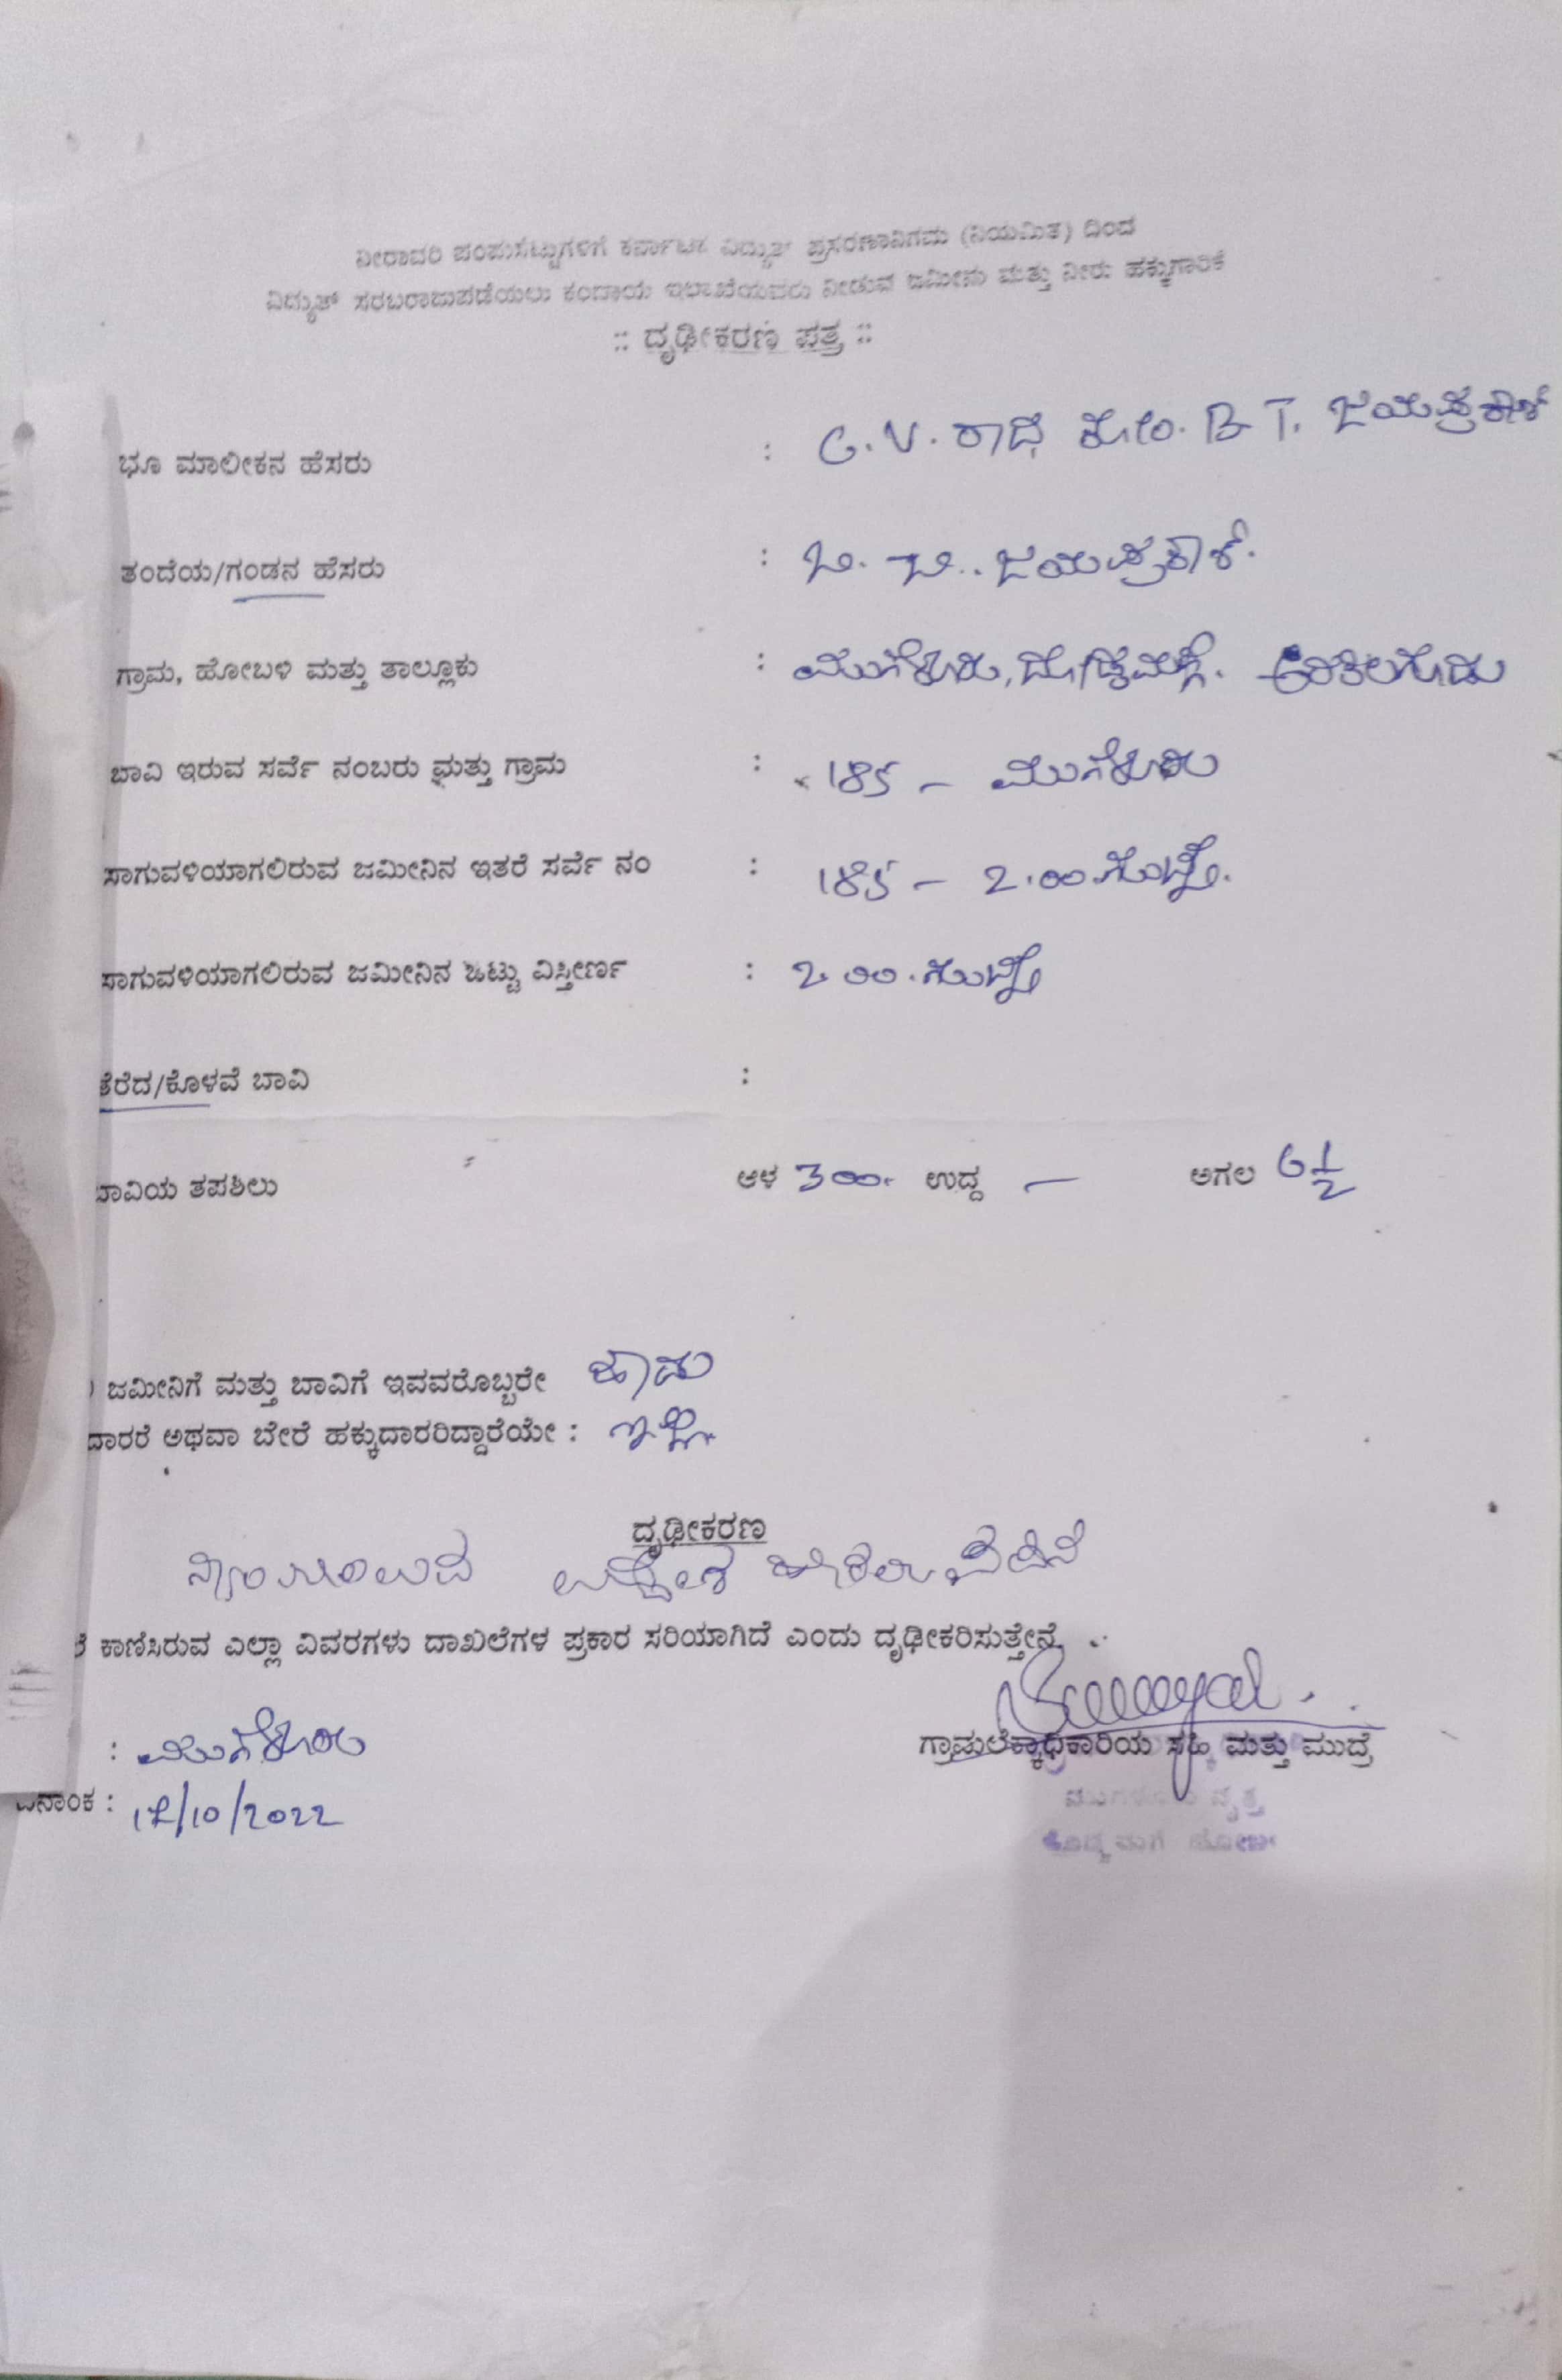 ನೀರಾವರಿ ಪಂಪುಸೆಟ್ಟುಗಳಿಗೆ ಕರ್ನಾಟಕ ವಿದ್ಯುತ್ ಪ್ರಸರಣಾನಿಗಮ (ನಿಯಮಿತ) ದಿಂದ
ವಿದ್ಯುತ್ ಸರಬರಾಜುಪಡೆಯಲು ಕಂದಾಯ ಇಲಾಖೆಯವರು ನೀಡುವ ಜಮೀನು ಮತ್ತು ನೀರು ಹಕ್ಕುಗಾರಿಕೆ
:: ದೃಢೀಕರಣ ಪತ್ರ ::
ಭೂ ಮಾಲೀಕನ ಹೆಸರು : G.V. ರಾಧ ಕೋಂ. B T. ಜಯಪ್ರಕಾಶ್
ತಂದೆಯ/ಗಂಡನ ಹೆಸರು : ಬಿ. ಟಿ.. ಜಯಪ್ರಕಾಶ್.
ಗ್ರಾಮ, ಹೋಬಳಿ ಮತ್ತು ತಾಲ್ಲೂಕು : ಮುಗಳೂರು, ದೊಡ್ಡಮಗ್ಗೆ. ಅರಕಲಗೂಡು
ಬಾವಿ ಇರುವ ಸರ್ವೆ ನಂಬರು ಮತ್ತು ಗ್ರಾಮ : 185 - ಮುಗಳೂರು
ಸಾಗುವಳಿಯಾಗಲಿರುವ ಜಮೀನಿನ ಇತರೆ ಸರ್ವೆ ನಂ : 185 - 2.00 ಗುಂಟೆ.
ಸಾಗುವಳಿಯಾಗಲಿರುವ ಜಮೀನಿನ ಒಟ್ಟು ವಿಸ್ತೀರ್ಣ : 2.00. ಗುಂಟೆ
ತೆರೆದ/ಕೊಳವೆ ಬಾವಿ :
ಬಾವಿಯ ತಪಶಿಲು ಆಳ 300. ಉದ್ದ — ಅಗಲ 6 1/2
ಜಮೀನಿಗೆ ಮತ್ತು ಬಾವಿಗೆ ಇವವರೊಬ್ಬರೇ ಹೌದು
ದಾರರೆ ಅಥವಾ ಬೇರೆ ಹಕ್ಕುದಾರರಿದ್ದಾರೆಯೇ : ಇಲ್ಲ.
ದೃಢೀಕರಣ
ಕಾಣಿಸಿರುವ ಎಲ್ಲಾ ವಿವರಗಳು ದಾಖಲೆಗಳ ಪ್ರಕಾರ ಸರಿಯಾಗಿದೆ ಎಂದು ದೃಢೀಕರಿಸುತ್ತೇನೆ
: ಮುಗಳೂರು
ಗ್ರಾಮಲೆಕ್ಕಾಧಿಕಾರಿಯ ಸಹಿ ಮತ್ತು ಮುದ್ರೆ
ದಿನಾಂಕ : 17/10/2022